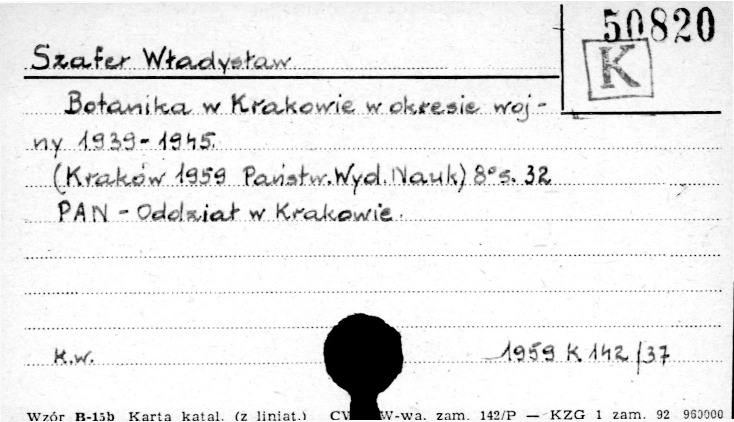 50820
K
Szafer Władysław
Botanika w Krakowie w okresie woj-
ny 1939-1945.
(Kraków 1959 Państw.Wyd.Nauk) 8° s. 32
PAN - Oddział w Krakowie.
K.w. 1959 K 142/37
Wzór B-15b Karta katal. (z liniat.) CW W-wa. zam. 142/P — KZG 1 zam. 92 960000